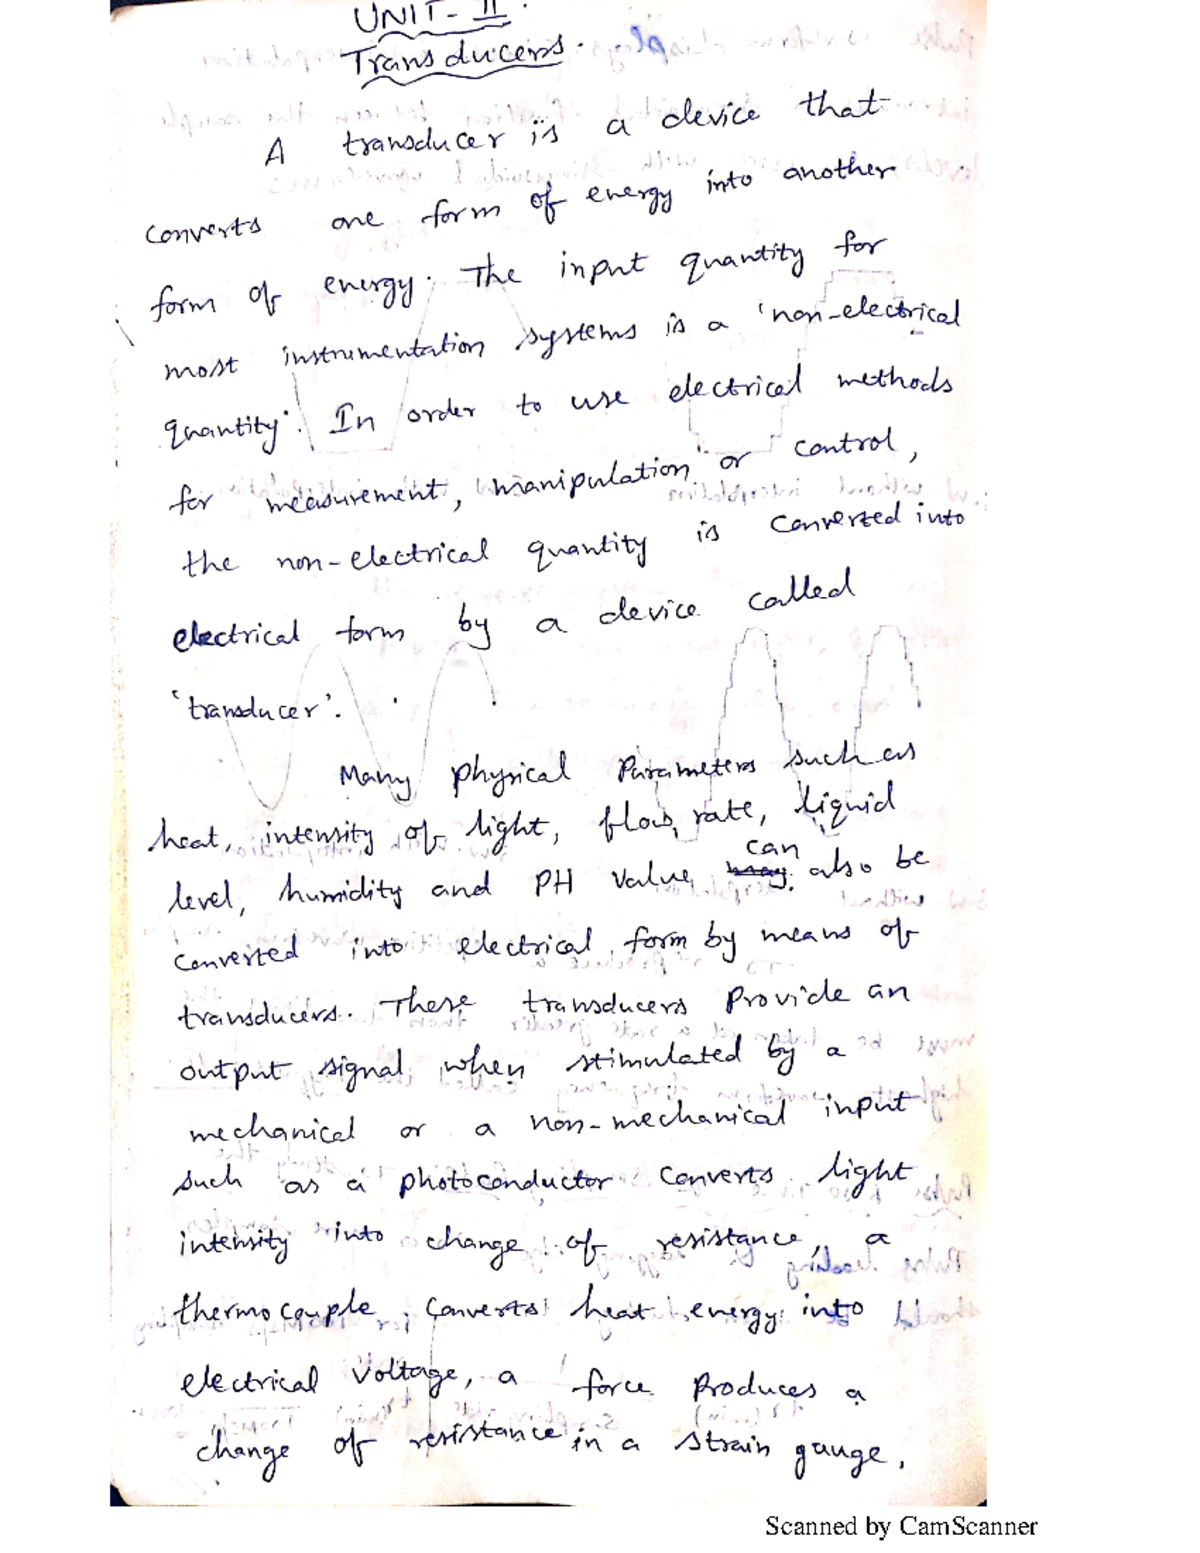 UNIT-II.
Transducers.
A transducer is a device that
converts one form of energy into another
form of energy. The input quantity for
most instrumentation systems is a 'non-electrical
quantity'. In order to use electrical methods
for measurement, manipulation or control,
the non-electrical quantity is converted into
electrical form by a device called
'transducer'.
Many physical Parameters such as
heat, intensity of light, flow rate, liquid
can
level, humidity and PH value may also be
converted into electrical form by means of
transducers. These transducers Provide an
output signal when stimulated by a
mechanical or a non-mechanical input
such as a photoconductor converts light
intensity into change of resistance, a
thermocouple converts heat energy into
electrical voltage, a force Produces a
change of resistance in a strain gauge,
Scanned by CamScanner